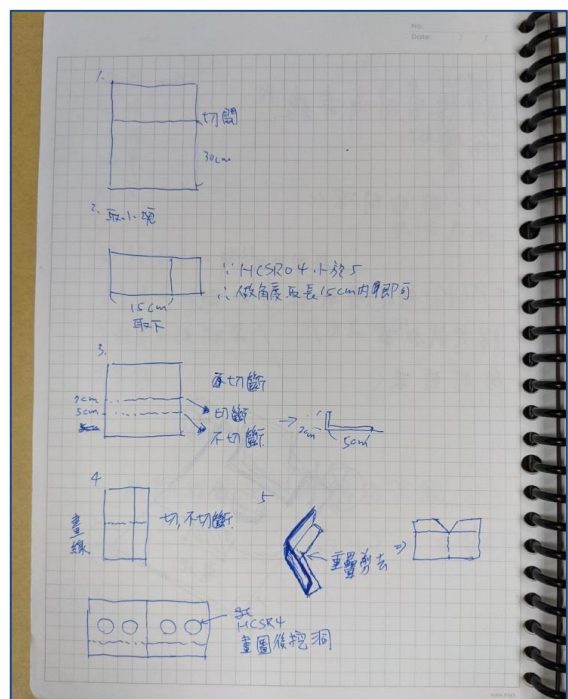 No.
Date: / /
1.
切開
30cm
2. 取小塊
∵ HCSR04 小於5
∴ 做角度 取長15cm內即可
15cm
取下
3.
不切斷
7cm
5cm
切斷
不切斷
→ 2cm 5cm
4
畫線
切,不切斷
5
重疊剪去 ⇒
HCSR4
畫圓後挖洞